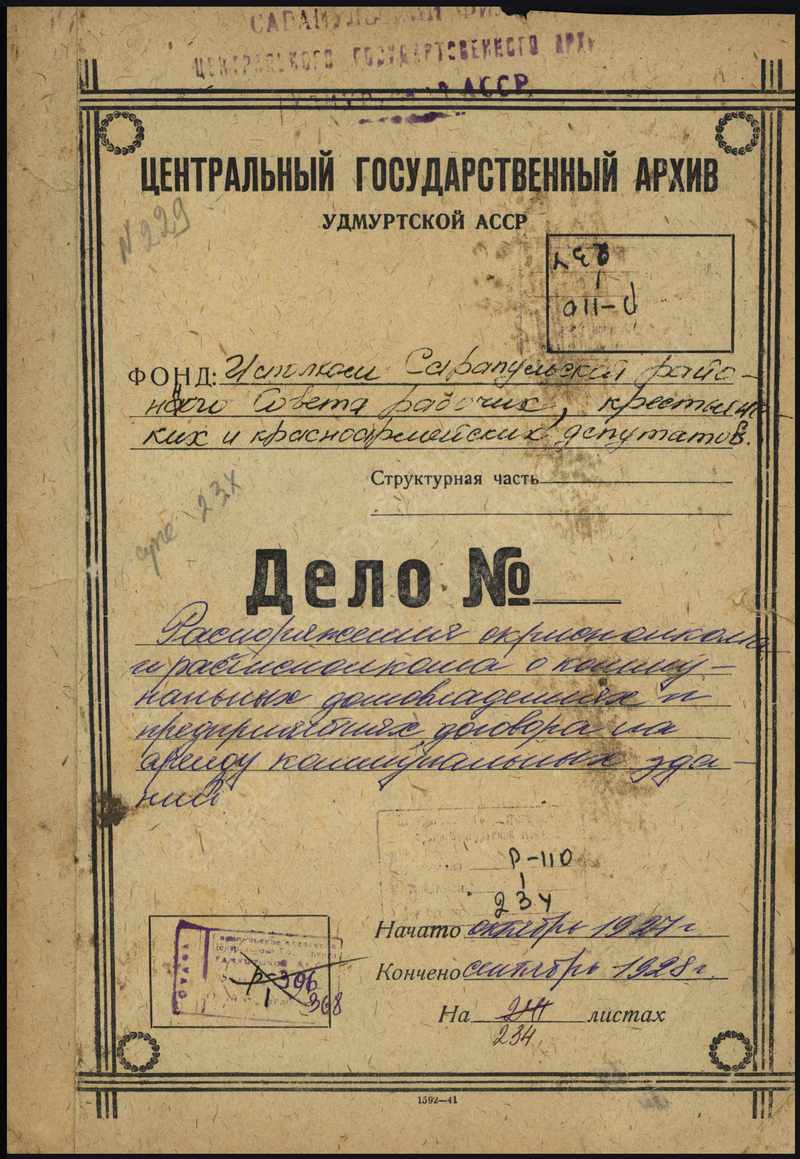 ЦЕНТРАЛЬНОГО ГОСУДАРТСВЕННОГО АРХ
АССР
ЦЕНТРАЛЬНЫЙ ГОСУДАРСТВЕННЫЙ АРХИВ
УДМУРТСКОЙ АССР
N 229
ФОНД: Исполком Сарапульской райо-
нного Совета рабочих, крестьянс-
ких и красноармейских депутатов.
Структурная часть
Дело №
Распоряжения окрисполкома
и райисполкома о комму-
нальных домовладениях и
предприятиях договора на
аренду коммунальных зда-
ний
Р-110
1
234
Начато октябрь 1927 г.
Кончено сентябрь 1928 г.
Р-396
1
368
На листах
234
1592—41